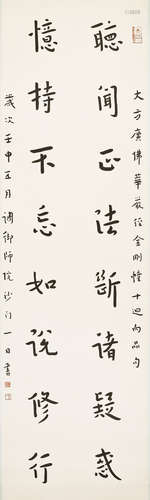 大方廣佛華嚴經金剛幢十迴向品句
聽聞正法斷諸疑惑
憶持不忘如說修行
歲次壬申五月調御師院沙門一日書